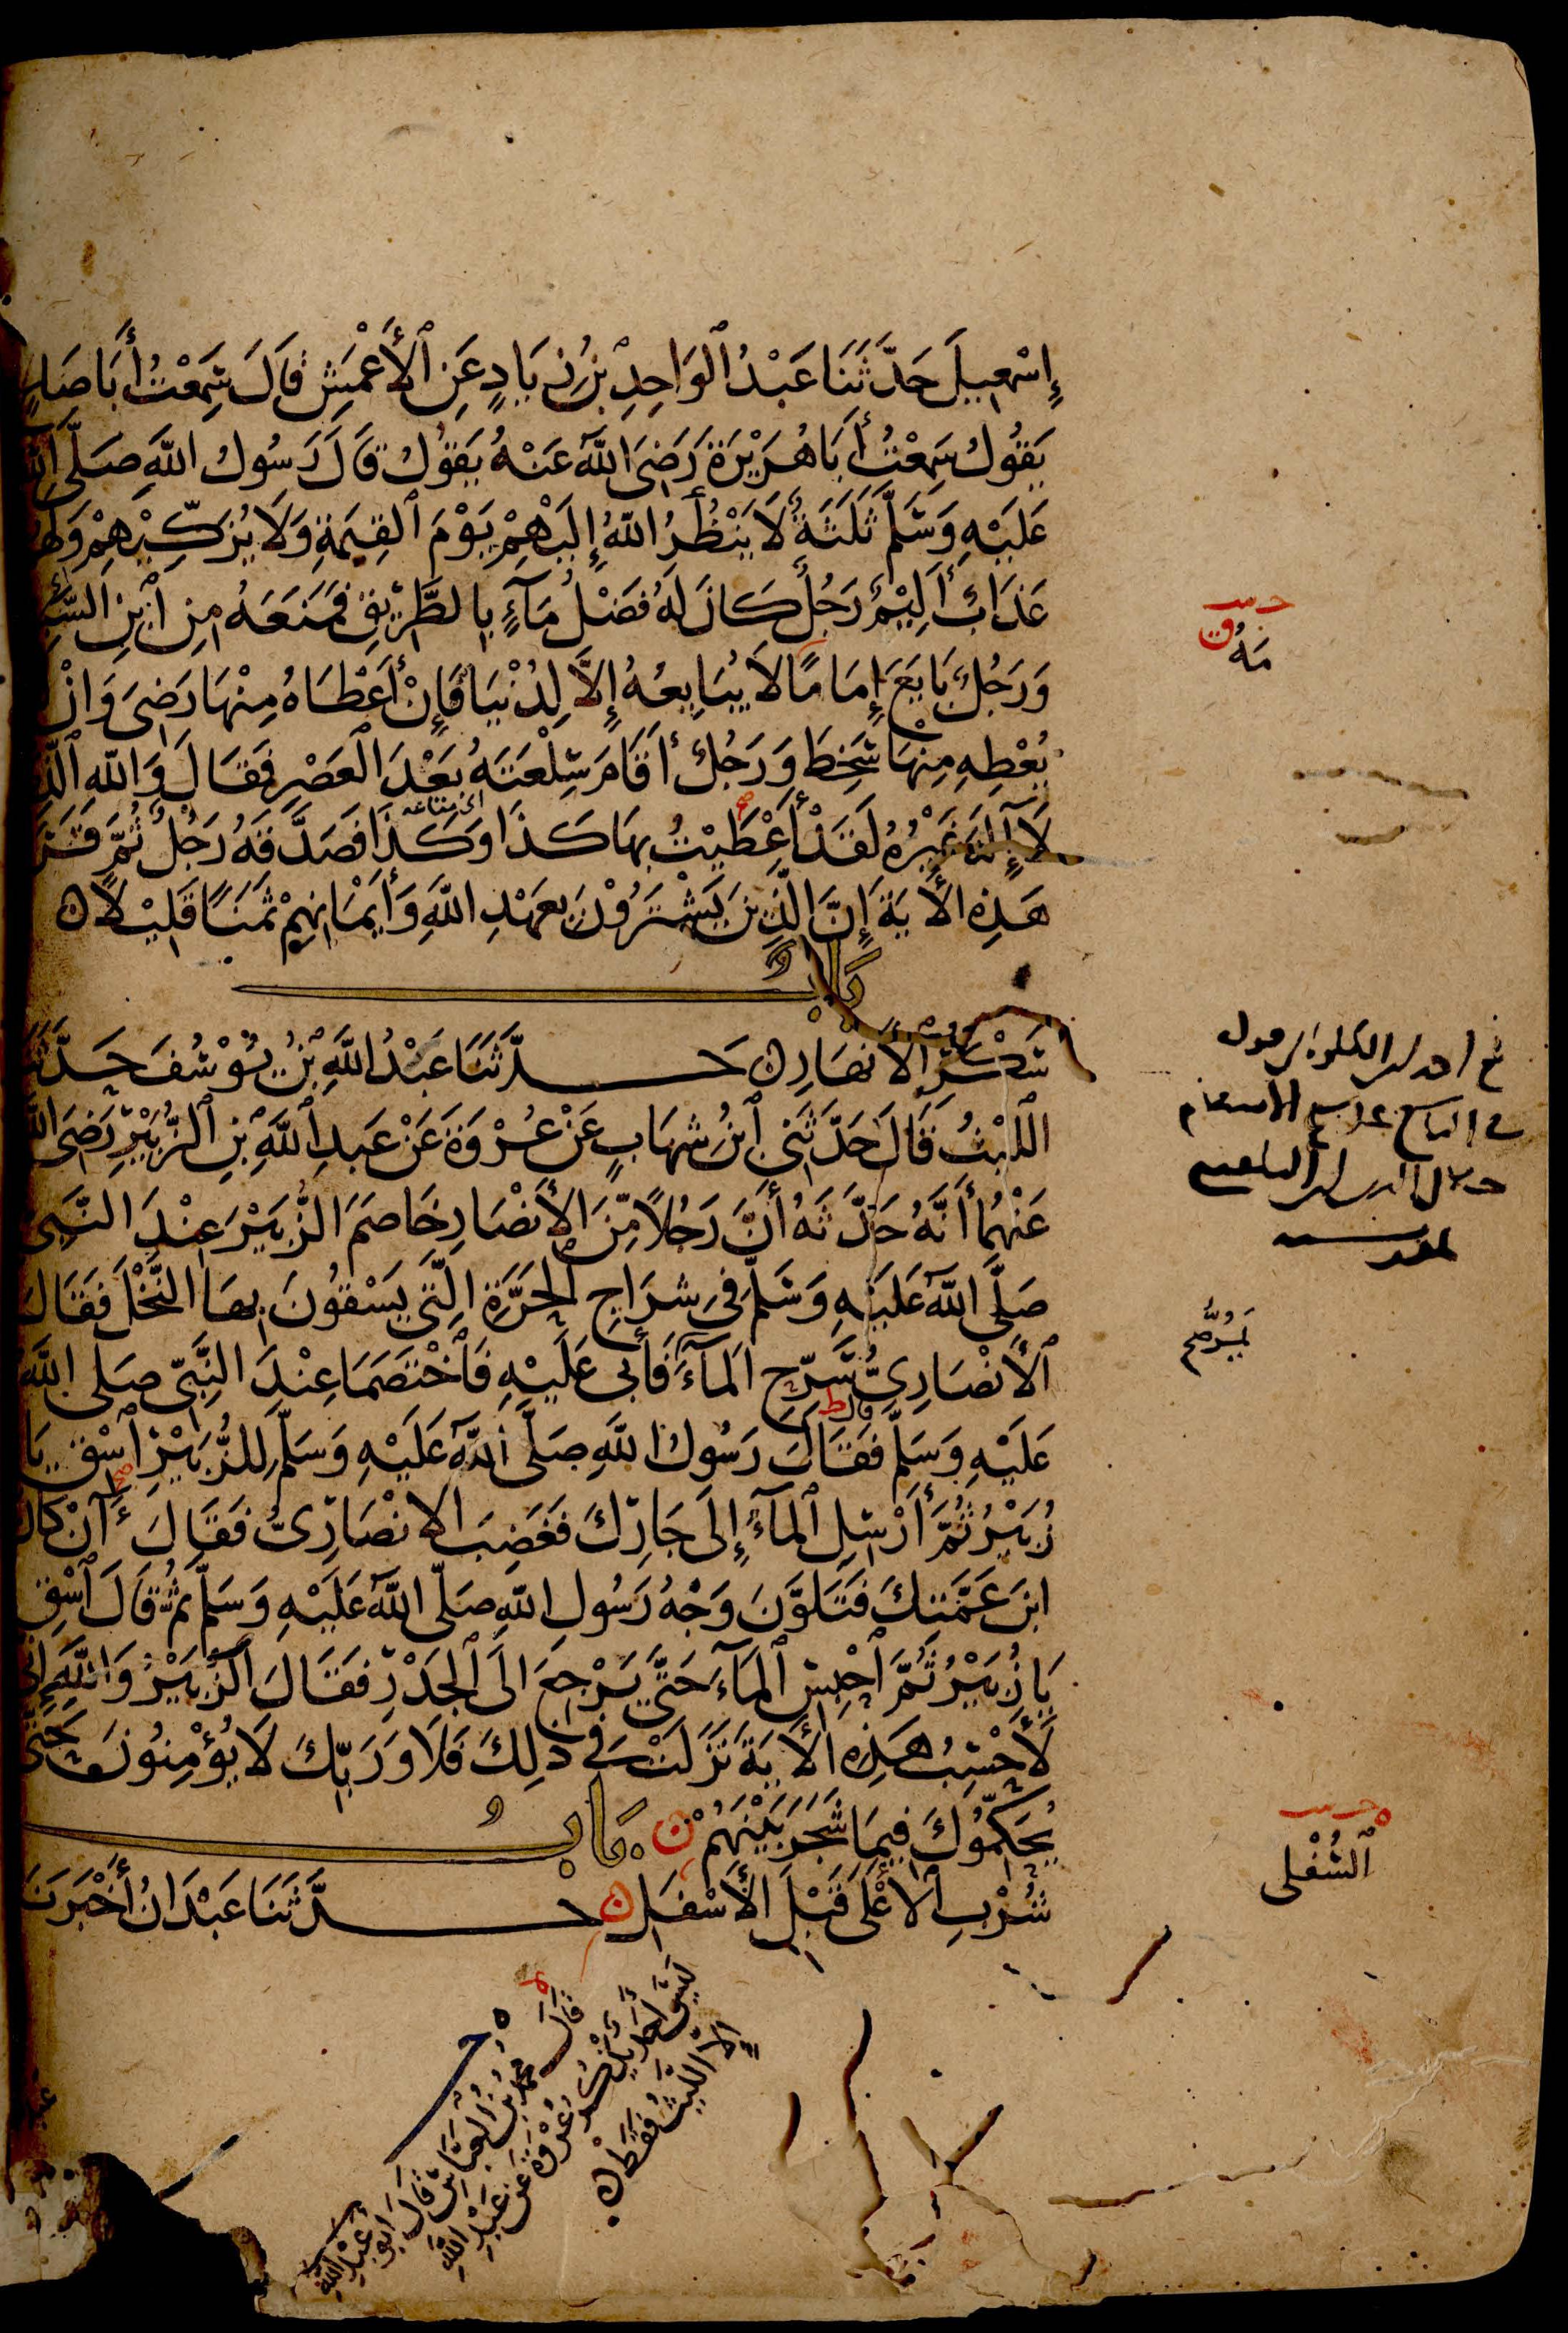 إِسْمٰعِيلَ حَدَّثَنَا عَبْدُ ٱلْوَاحِدِ بْنُ زِيَادٍ عَنِ ٱلْأَعْمَشِ قَالَ سَمِعْتُ أَبَا صَالِحٍ
يَقُولُ سَمِعْتُ أَبَا هُرَيْرَةَ رَضِيَ اللَّهُ عَنْهُ يَقُولُ قَالَ رَسُولُ اللَّهِ صَلَّى اللَّهُ
عَلَيْهِ وَسَلَّمَ ثَلٰثَةٌ لَا يَنْظُرُ اللَّهُ إِلَيْهِمْ يَوْمَ ٱلْقِيٰمَةِ وَلَا يُزَكِّيْهِمْ وَلَهُمْ
عَذَابٌ أَلِيْمٌ رَجُلٌ كَانَ لَهُ فَضْلُ مَآءٍ بِالطَّرِيْقِ فَمَنَعَهُ مِنِ ٱبْنِ السَّبِيلِ
وَرَجُلٌ بَايَعَ إِمَامًا لَا يُبَايِعُهُ إِلَّا لِدُنْيَا فَإِنْ أَعْطَاهُ مِنْهَا رَضِيَ وَإِنْ
يُعْطِهِ مِنْهَا سَخِطَ وَرَجُلٌ أَقَامَ سِلْعَتَهُ بَعْدَ الْعَصْرِ فَقَالَ وَاللَّهِ ٱلَّذِي
لَآ إِلٰهَ غَيْرُهُ لَقَدْ أُعْطِيْتُ بِهَا كَذَا وَكَذَا فَصَدَّقَهُ رَجُلٌ ثُمَّ قَرَأَ
اى متاعه
هَذِهِ الْأٰيَةَ إِنَّ الَّذِينَ يَشْتَرُوْنَ بِعَهْدِ اللَّهِ وَأَيْمَانِهِمْ ثَمَنًا قَلِيْلًا
بَابُ
سَكْرِ الْأَنْصَارِ حَدَّثَنَا عَبْدُ اللَّهِ بْنُ يُوْسُفَ حَدَّثَنَا
اللَّيْثُ قَالَ حَدَّثَنِي ٱبْنُ شِهَابٍ عَنْ عُرْوَةَ عَنْ عَبْدِ ٱللَّهِ بْنِ ٱلزُّبَيْرِ رَضِيَ اللَّهُ
عَنْهُمَا أَنَّهُ حَدَّثَهُ أَنَّ رَجُلًا مِّنَ الْأَنْصَارِ خَاصَمَ الزُّبَيْرَ عِنْدَ النَّبِيِّ
صَلَّى اللَّهُ عَلَيْهِ وَسَلَّمَ فِي شِرَاجِ الْحَرَّةِ الَّتِي يَسْقُونَ بِهَا النَّخْلَ فَقَالَ
ٱلْأَنْصَارِيُّ سَرِّحِ الْمَآءَ فَأَبَى عَلَيْهِ فَٱخْتَصَمَا عِنْدَ النَّبِيِّ صَلَّى اللَّهُ
عَلَيْهِ وَسَلَّمَ فَقَالَ رَسُولُ اللَّهِ صَلَّى اللَّهُ عَلَيْهِ وَسَلَّمَ لِلزُّبَيْرِ ٱسْقِ يَا
زُبَيْرُ ثُمَّ أَرْسِلِ ٱلْمَآءَ إِلَى جَارِكَ فَغَضِبَ الْأَنْصَارِيُّ فَقَالَ ءَآنْ كَانَ
ابْنَ عَمَّتِكَ فَتَلَوَّنَ وَجْهُ رَسُولِ اللَّهِ صَلَّى اللَّهُ عَلَيْهِ وَسَلَّمَ ثُمَّ قَالَ ٱسْقِ
يَا زُبَيْرُ ثُمَّ ٱحْبِسِ ٱلْمَآءَ حَتَّى يَرْجِعَ إِلَى ٱلْجَدْرِ فَقَالَ الزُّبَيْرُ وَاللَّهِ إِنِّي
لَأَحْسِبُ هَذِهِ الْأٰيَةَ نَزَلَتْ فِي ذٰلِكَ فَلَا وَرَبِّكَ لَا يُؤْمِنُونَ حَتَّى
يُحَكِّمُوكَ فِيمَا شَجَرَ بَيْنَهُمْ بَابُ
شُرْبِ الْأَعْلَى قَبْلَ الْأَسْفَلِ حَدَّثَنَا عَبْدَانُ أَخْبَرَنَا
مَهُ
ٱلسُّفْلَى
قَالَ مُحَمَّدُ بْنُ الْعَبَّاسِ قَالَ أَبُو عَبْدِ اللَّهِ
لَيْسَ أَحَدٌ يَذْكُرُ عُرْوَةَ عَنْ عَبْدِ اللَّهِ
إِلَّا اللَّيْثُ فَقَطْ